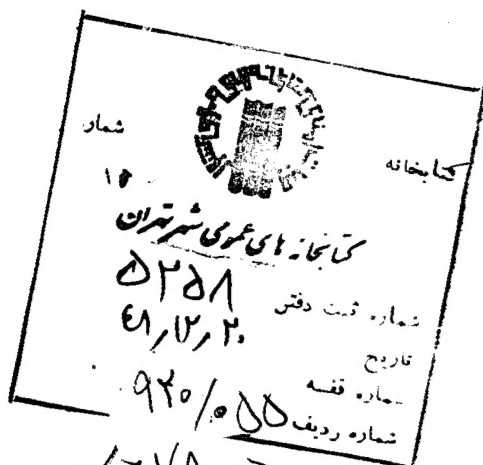 کتابخانه شمار
۱۵
کتابخانه های عمومی شهر تهران
شماره ثبت دفتر ۵۲۵۸
تاریخ ۴۸٫۱۲٫۲۰
شماره قفسه
شماره ردیف ۹۲۰/۰۵۵